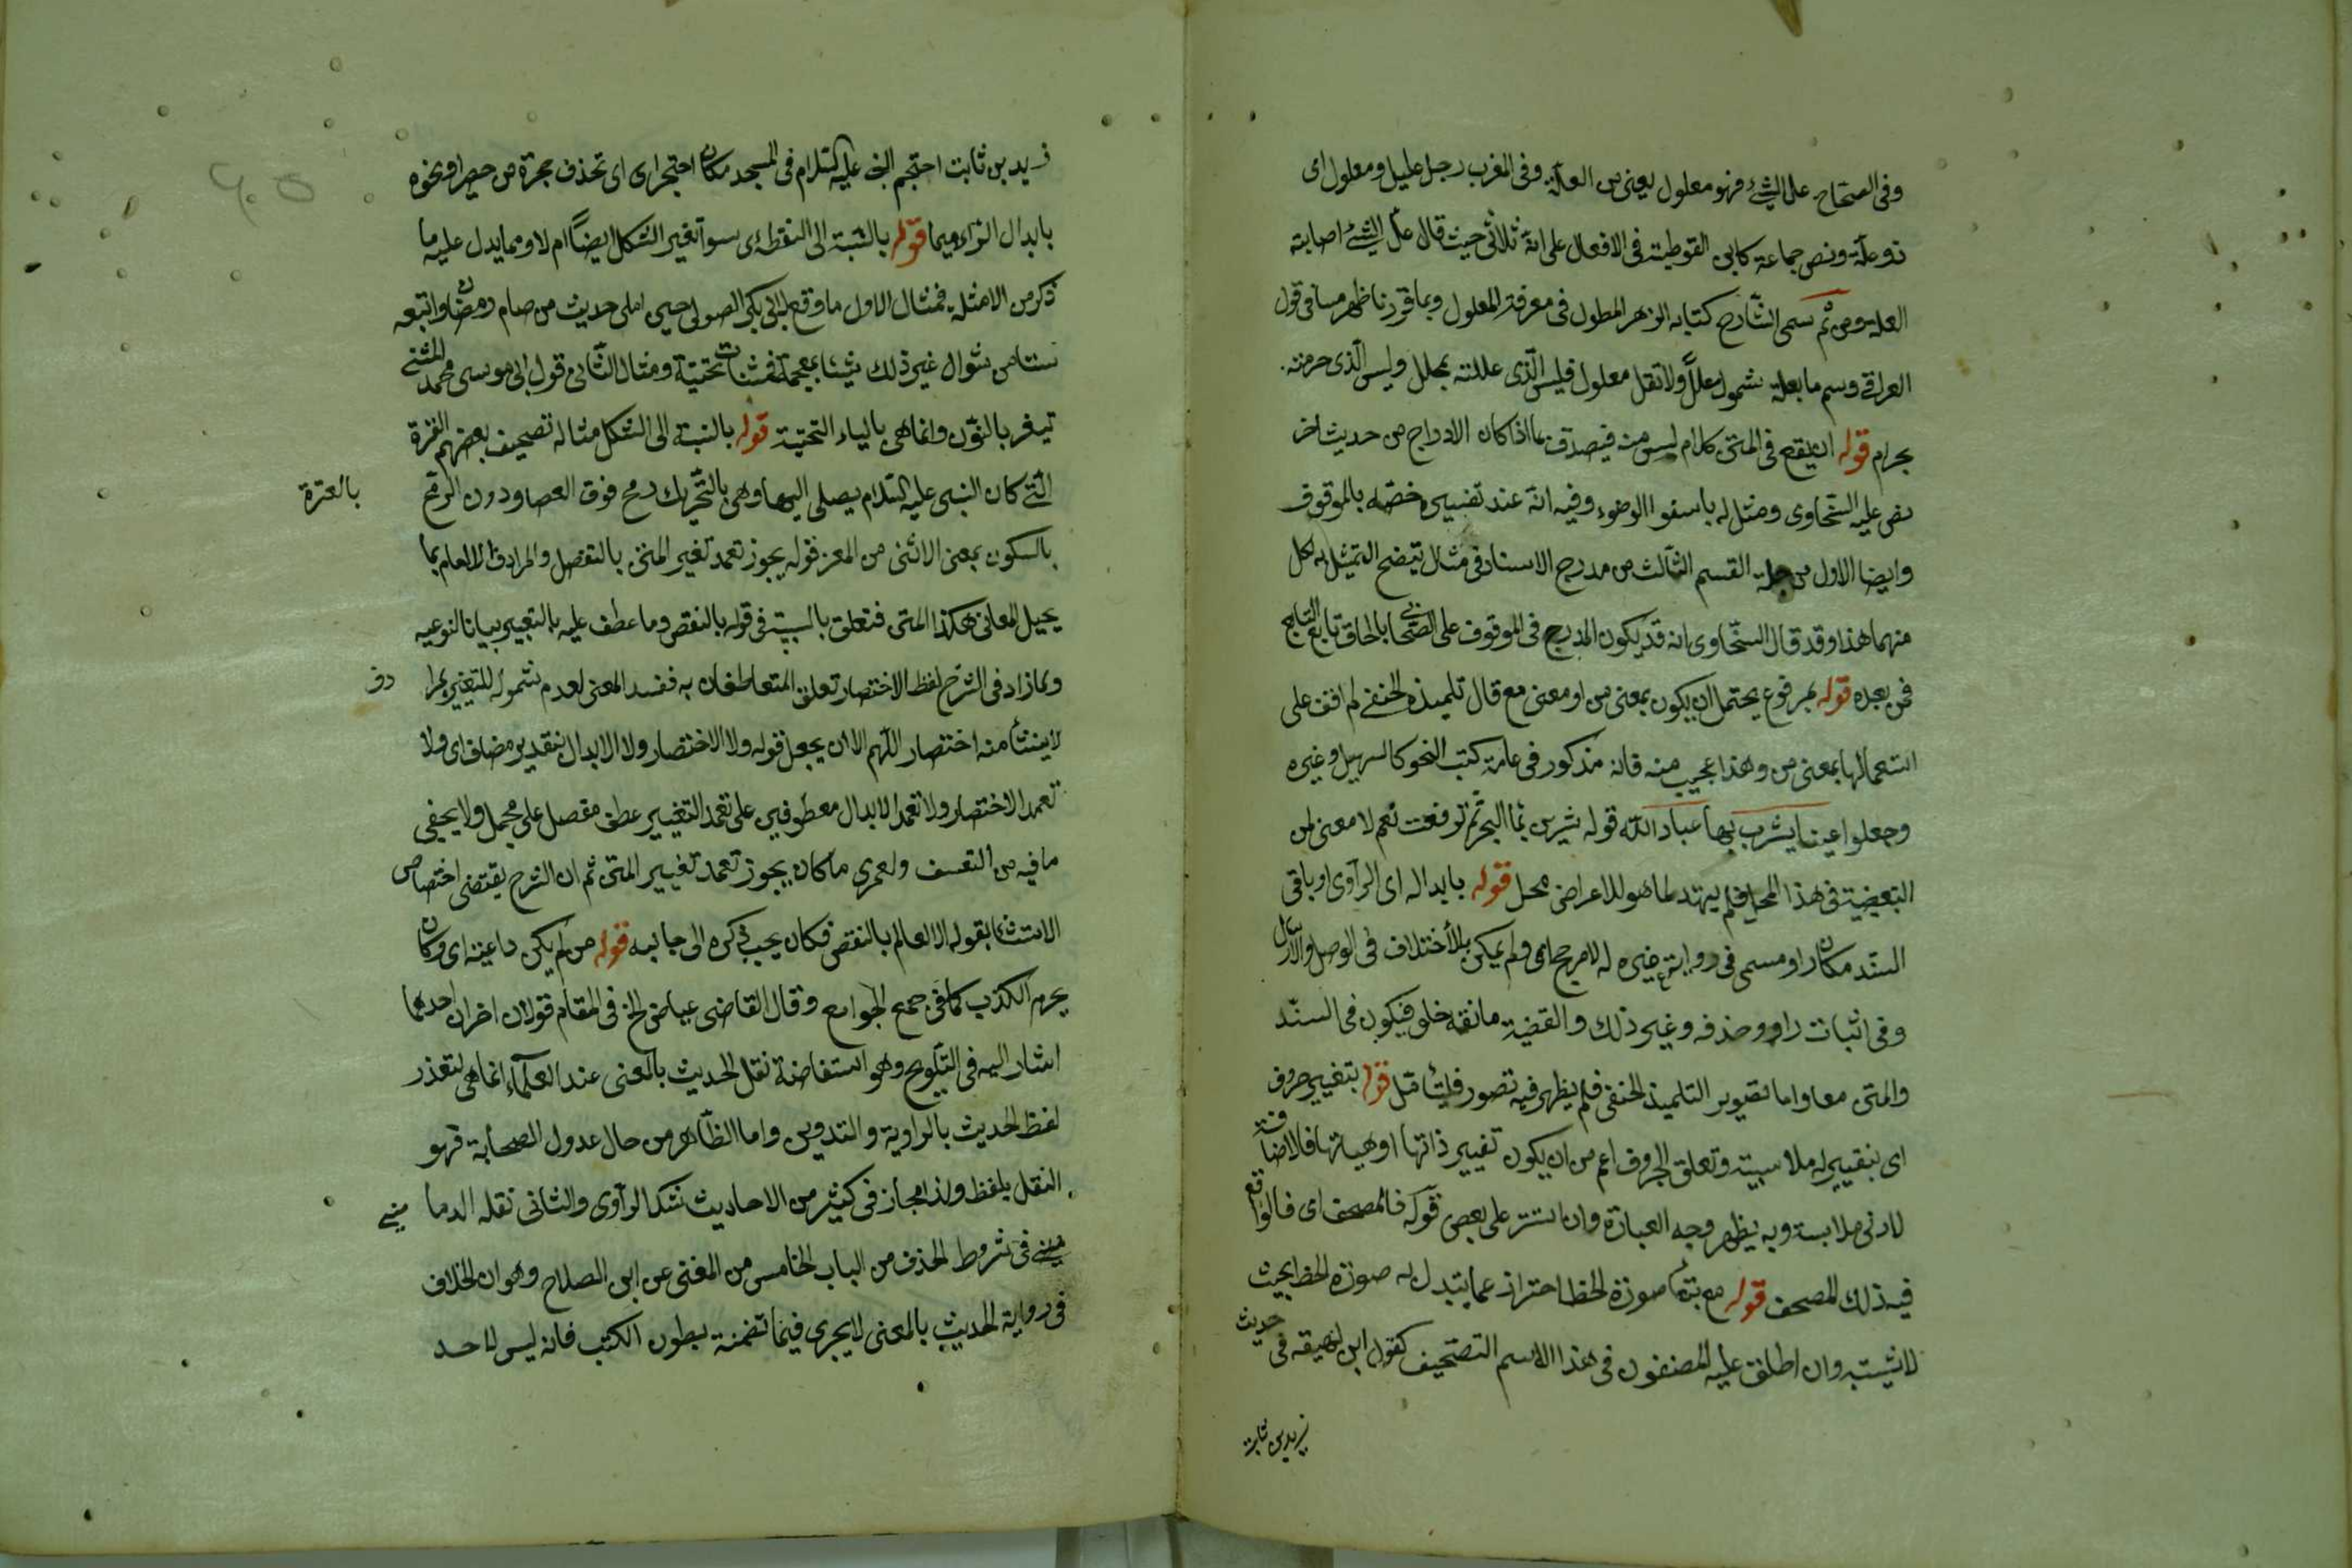 وفى الصحاح علّ الشئ فهو معلول يعنى من العلّة وفى المغرب رجل عليل ومعلول اى
ذو علّة ونص جماعة كابن القوطية فى الافعال على انه ثلاثى حيث قال علّ الشئ اصابته
العلة ومن ثم سمى الشارح كتابه الزهر المطول فى معرفة المعلول وبما قررنا ظهر ما فى قول
العراقى وسم ما بعلة مشمول معللا ولا تقل معلول فليس الذى عللته بمعلل وليس الذى حرمته
بحرام قوله ان يقع فى المتن كلام ليس منه فيصدق بما اذا كان الادراج من حديث اخر
نص عليه السخاوى ومثل له باسبغوا الوضوء وفيه انه عند تفسيره خصّه بالموقوف
وايضا الاول من جملة القسم الثالث من مدرج الاسناد فى مثال يتضح التمثيل به لكل
منهما هذا وقد قال السخاوى انه قد يكون المدرج فى الموقوف على الصحابى بالحاق تابع التابع
فمن بعده قوله بمرفوع يحتمل ان يكون بمعنى من او معنى مع قال تلميذه الحنفى لم اقف على
استعمالها بمعنى من وهذا عجيب منه فانه مذكور فى عامة كتب النحو كالتسهيل وغيره
وجعلوا عينا يشرب بها عباد الله قوله شربن بماء البحر ثم ترفعت نعم لا معنى لمن
التبعيضية فى هذا المحل فلم يهتد لما هو للاعراض محل قوله بابداله اى الراوى او باقى
السند مكان راو مسمى فى رواية غيره له لا مرجح اى ولم يمكن بالأختلاف فى الوصل والارسال
وفى اثبات راو وحذفه وغير ذلك والقضية مانعة خلو فيكون فى السند
والمتن معا واما تصوير التلميذ الحنفى فلم يظهر فيه تصور فليتأمل قوله بتغيير حروف
اى بتغيير له ملابسية وتعلق بالحروف اعم من ان يكون تغيير ذاتها او هيئتها فالاضافة
لادنى ملابسة وبه يظهر وجه العبارة وان استتر على بعض قوله فالمصحف اى فالواقع
فيه ذلك المصحف قوله مع بقاء صورة الخط احتراز عما يتبدل به صورة الخط بحيث
لا تشتبه وان اطلق عليه المصنفون فى هذا الاسم التصحيف كقول ابن لهيعة فى حديث
زيد بن ثابت
زيد بن ثابت احتجم النبى عليه السلام فى المسجد مكان احتجر اى اى تخذف حجرة من حصير او نحوه
بابدال الراء ميما قوله بالنسبة الى النقطة اى سواء تغير الشكل ايضاً ام لا ومما يدل عليه ما
ذكر من الامثلة فمثال الاول ما وقع لابى بكر الصولى حين املى حديث من صام رمضان واتبعه
ستا من شوال غير ذلك شيئا بمعجمة فمثناة تحتية ومثال الثانى قول ابى موسى محمد المثنى
تيعر بالنون وانما هى بالياء التحتية قوله بالنسبة الى الشكل مثاله تصحيف بعضهم العنزة
التى كان النبى عليه السلام يصلى اليها وهى بالتحريك رمح فوق العصا ودون الرمح بالعنزة
بالسكون بمعنى الانثى من المعز قوله يجوز تعمد تغير المتن بالنقص والمرادف الا لعالم بما
يحيل المعانى هكذا المتن فتعلق بالسببية فى قوله بالنقص وما عطف عليه بالتغيير بيانا لنوعيه
ولما زاد فى الشرح لفظ الاختصار تعلق المتعاطفان به ففسد المعنى لعدم شموله للتغيير بمرادف
لا ينشأ منه اختصار اللهم الا ان يجعل قوله ولا الاختصار ولا الابدال بتقدير مضاف اى ولا
تعمد الاختصار ولا تعمد الابدال معطوفين على تعمد التغيير عطف مفصل على مجمل ولا يخفى
ما فيه من التعسف ولعمرى ما كان يجوز تعمد تغيير المتن ثم ان الشرح يقتضى اختصاص
الاستثناء بقوله الا لعالم بالنقص فكان يجب ذكره الى جانبه قوله من لم يكن داعية اى وكان
يحرم الكذب كما فى جمع الجوامع وقال القاضى عياض الخ فى المقام قولان اخران احدهما
اشار اليه فى التلويح وهو استفاضة نقل الحديث بالمعنى عند العلماء انما هى لتعذر
لفظ الحديث بالراوية والتدوين واما الظاهر من حال عدول الصحابة فهو
النقل بلفظ ولذا مجاز فى كثير من الاحاديث شك الراوى والثانى نقله الدما مينى
مينى فى شروط الحذف من الباب الخامس من المغنى عن ابن الصلاح وهو ان الخلاف
فى رواية الحديث بالمعنى لا يجرى فيما تضمنته بطون الكتب فانه ليس لاحد